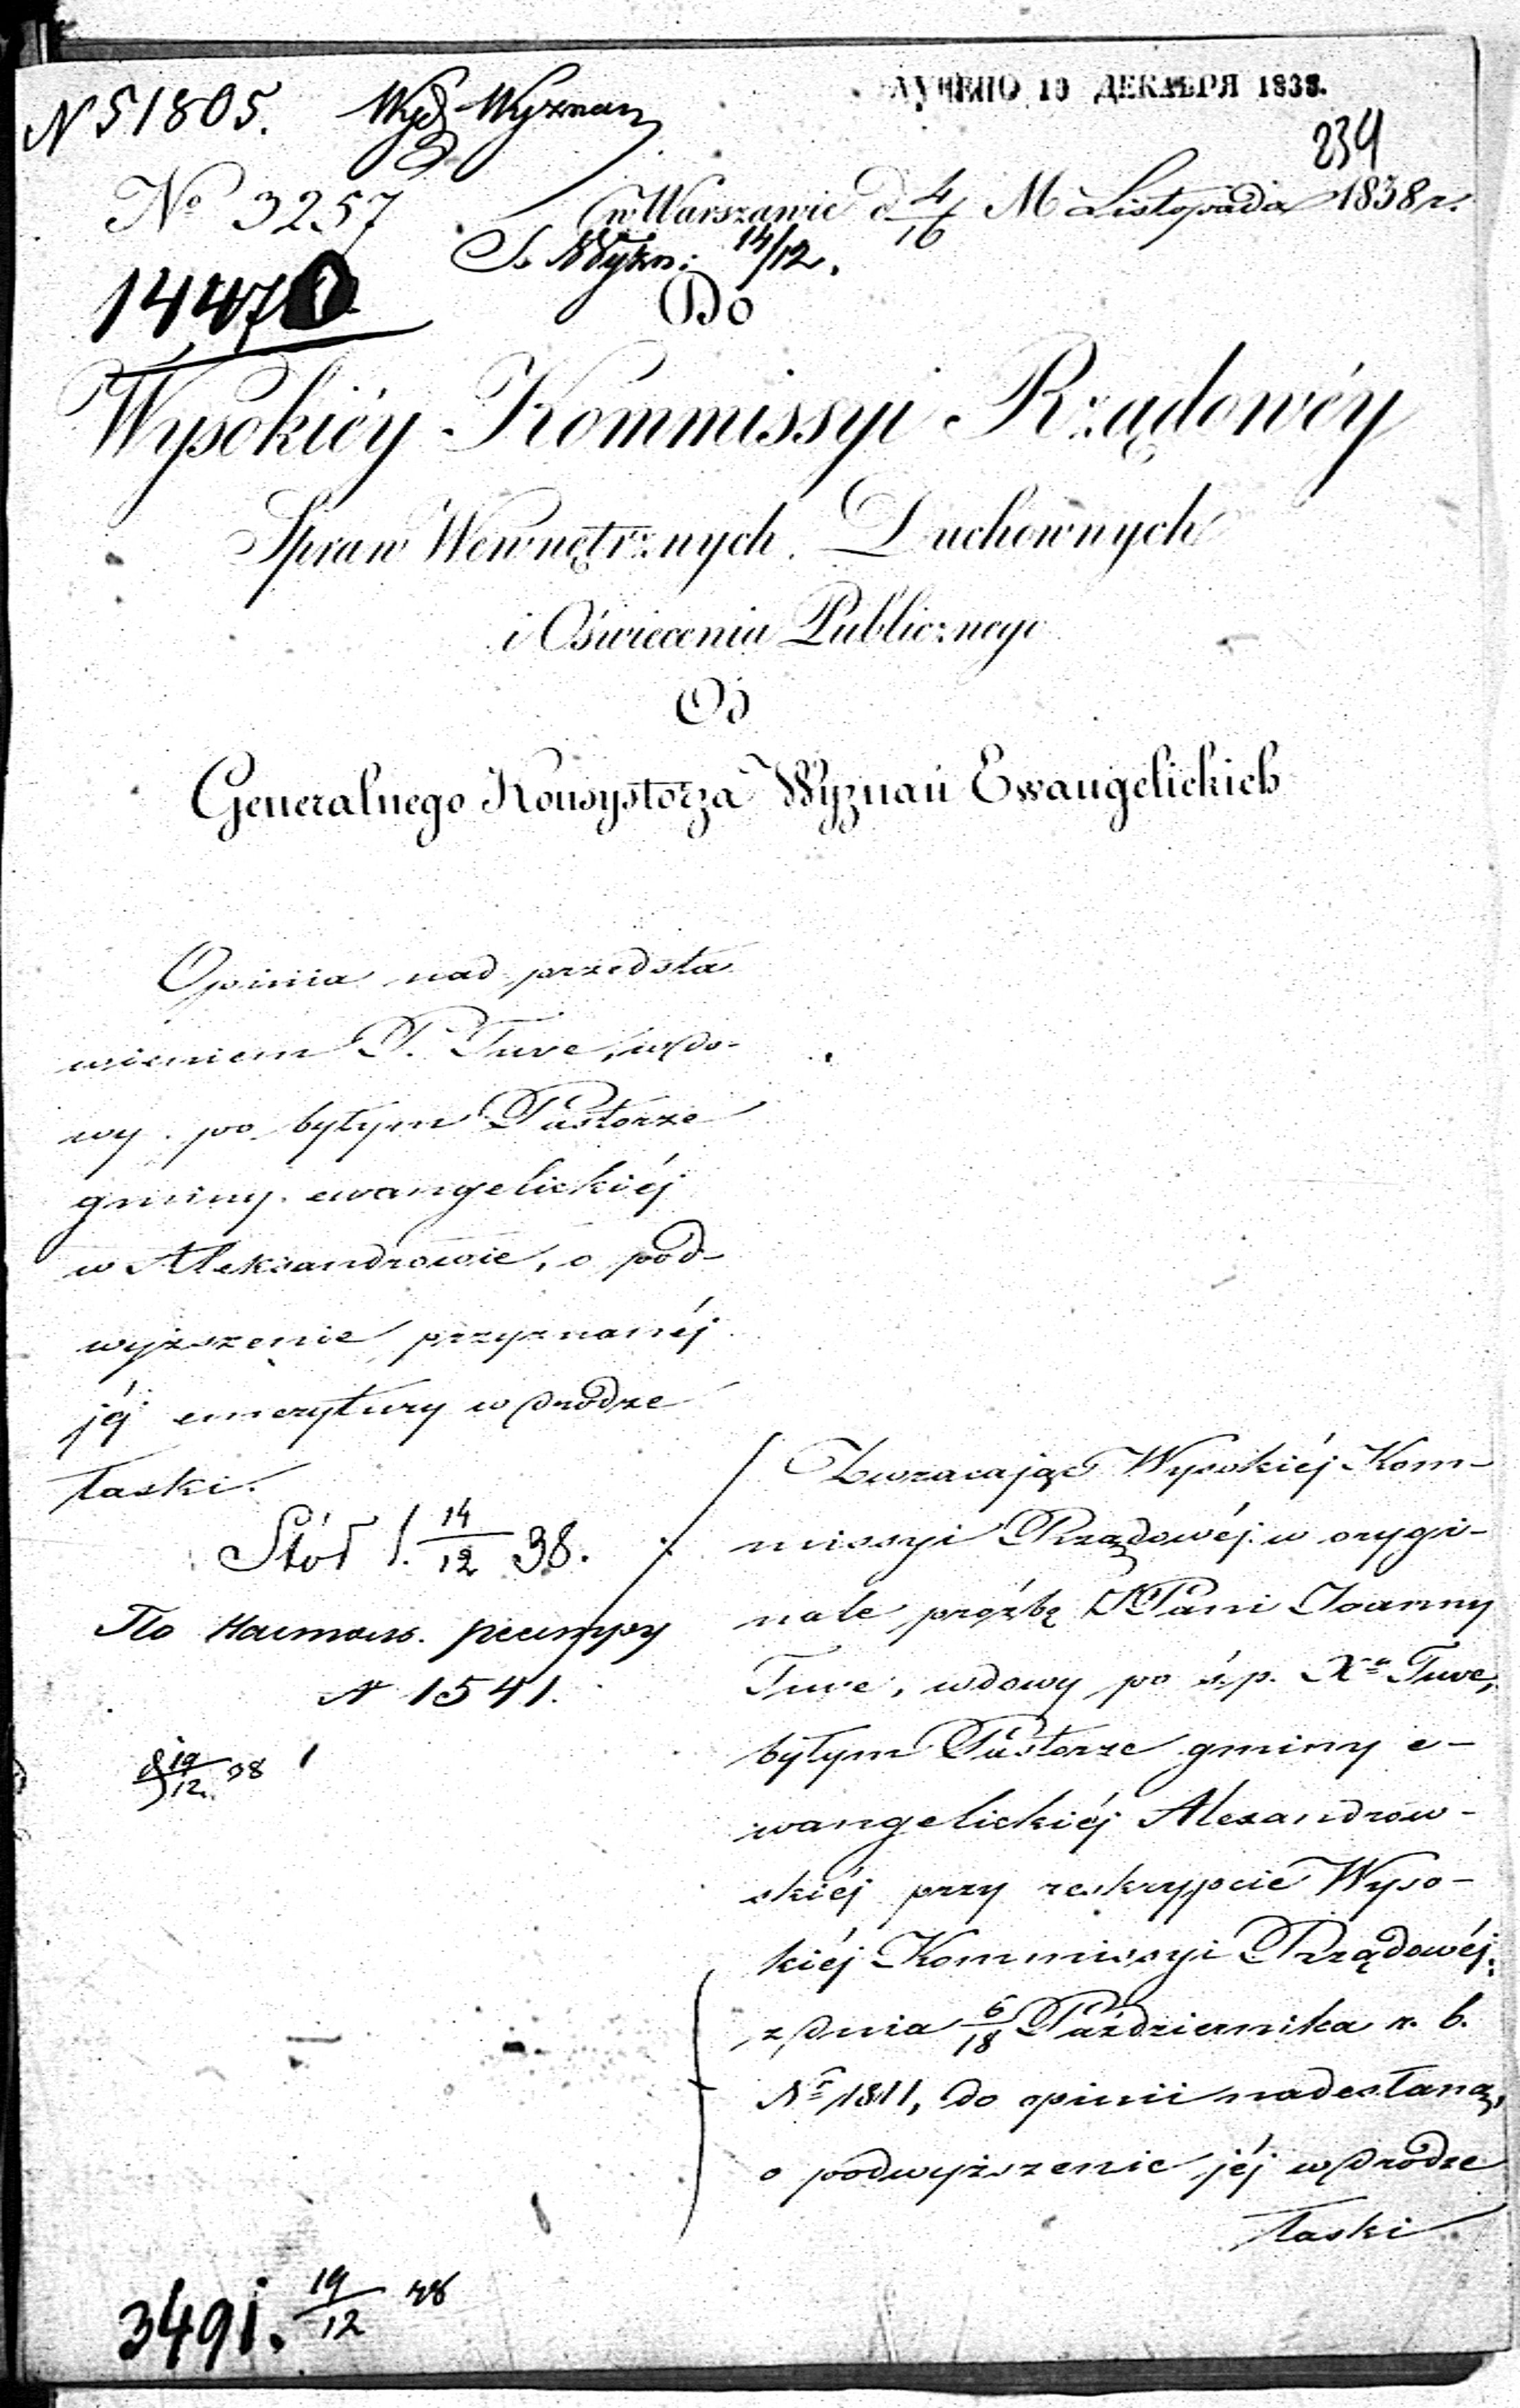 N 51805. Wyd. Wyznań
ЛУЧЕНО 10 ДЕКАБРЯ 1838.
234
No 3257
w Warszawie d 4/16 M Listopada 1838 r.
14/12.
1447
Do
Wysokiéy Kommissyi Rządowéy
Spraw Wewnętrznych Duchownych
i Oświecenia Publicznego
Od
Generalnego Konsystorza Wyznań Ewangelickich
Opinia nad przedsta
wieniem P. Tuve, wdo-
wy po byłym Pastorze
gminy ewangelickiéj
w Aleksandrowie, o pod-
wyższenie przyznanéj
jéj emerytury w drodze
łaski.
14/12 38.
По
N 1541.
19/12 38
Zwracając Wysokiéj Kom-
missyi Rządowéj w orygi-
nale prożbę JPani Joanny
Tuve, wdowy po ś.p. Xa Tuve,
byłym Pastorze gminy e-
wangelickiéj Alexandrow-
skiéj przy reskrypcie Wyso-
kiéj Kommissyi Rządowéj
z dnia 6/18 Października r. b.
Nr 1811, do opinii nadesłaną,
o podwyższenie jéj w drodze
łaski
3491. 19/12 38